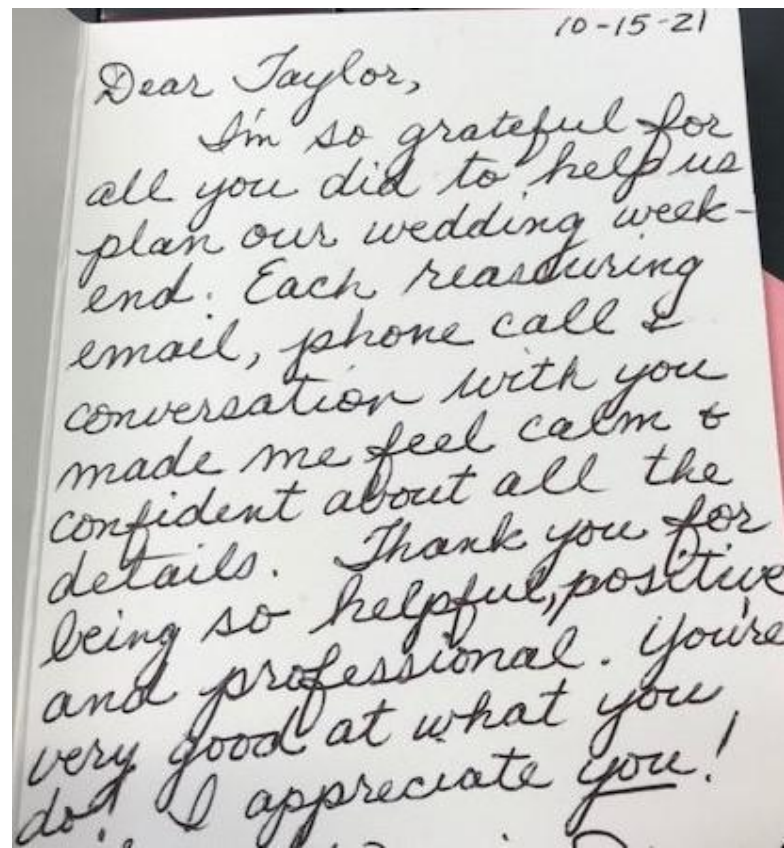 10-15-21
Dear Taylor,
I'm so grateful for
all you did to help us
plan our wedding week-
end. Each reassuring
email, phone call &
conversation with you
made me feel calm &
confident about all the
details. Thank you for
being so helpful, positive
and professional. You're
very good at what you
do! I appreciate you!